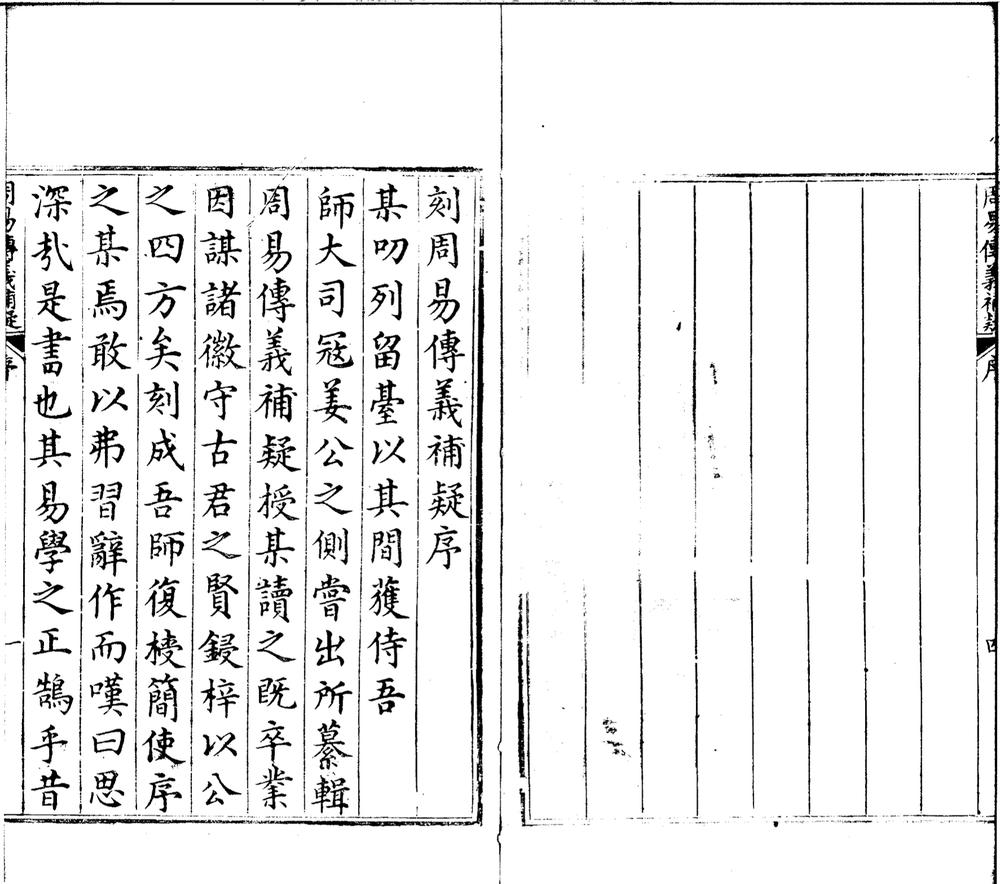 周易傳義補疑
序
四
刻周易傳義補疑序
某叨列留臺以其間獲侍吾
師大司冦姜公之側嘗出所纂輯
周易傳義補疑授某讀之既卒業
因謀諸徽守古君之賢鋟梓以公
之四方矣刻成吾師復授簡使序
之某焉敢以弗習辭作而嘆曰思
深哉是書也其易學之正鵠乎昔
周易傳義補疑
序
一